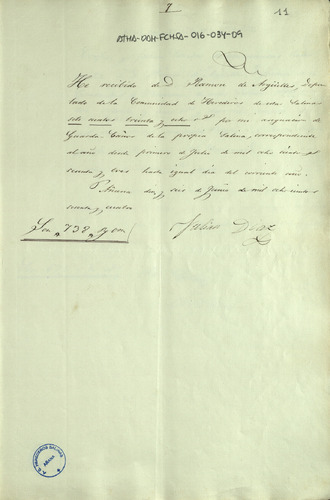 7
11
ATHA-DAH-FCHSA-016-034-09
He recibido de D. Ramon de Argüelles, Depu
tado de la Comunidad de Herederos de estas Salinas
sete cientos treinta y ocho por mi asignacion de
Guarda-Caños de la propia Salina, correspondiente
al año desde primero de Julio de mil ochocientos
y tres hasta igual dia del corriente año.
Añana diez y seis de Junio de mil ochocientos
y cuatro
Son 738
Julian Diaz